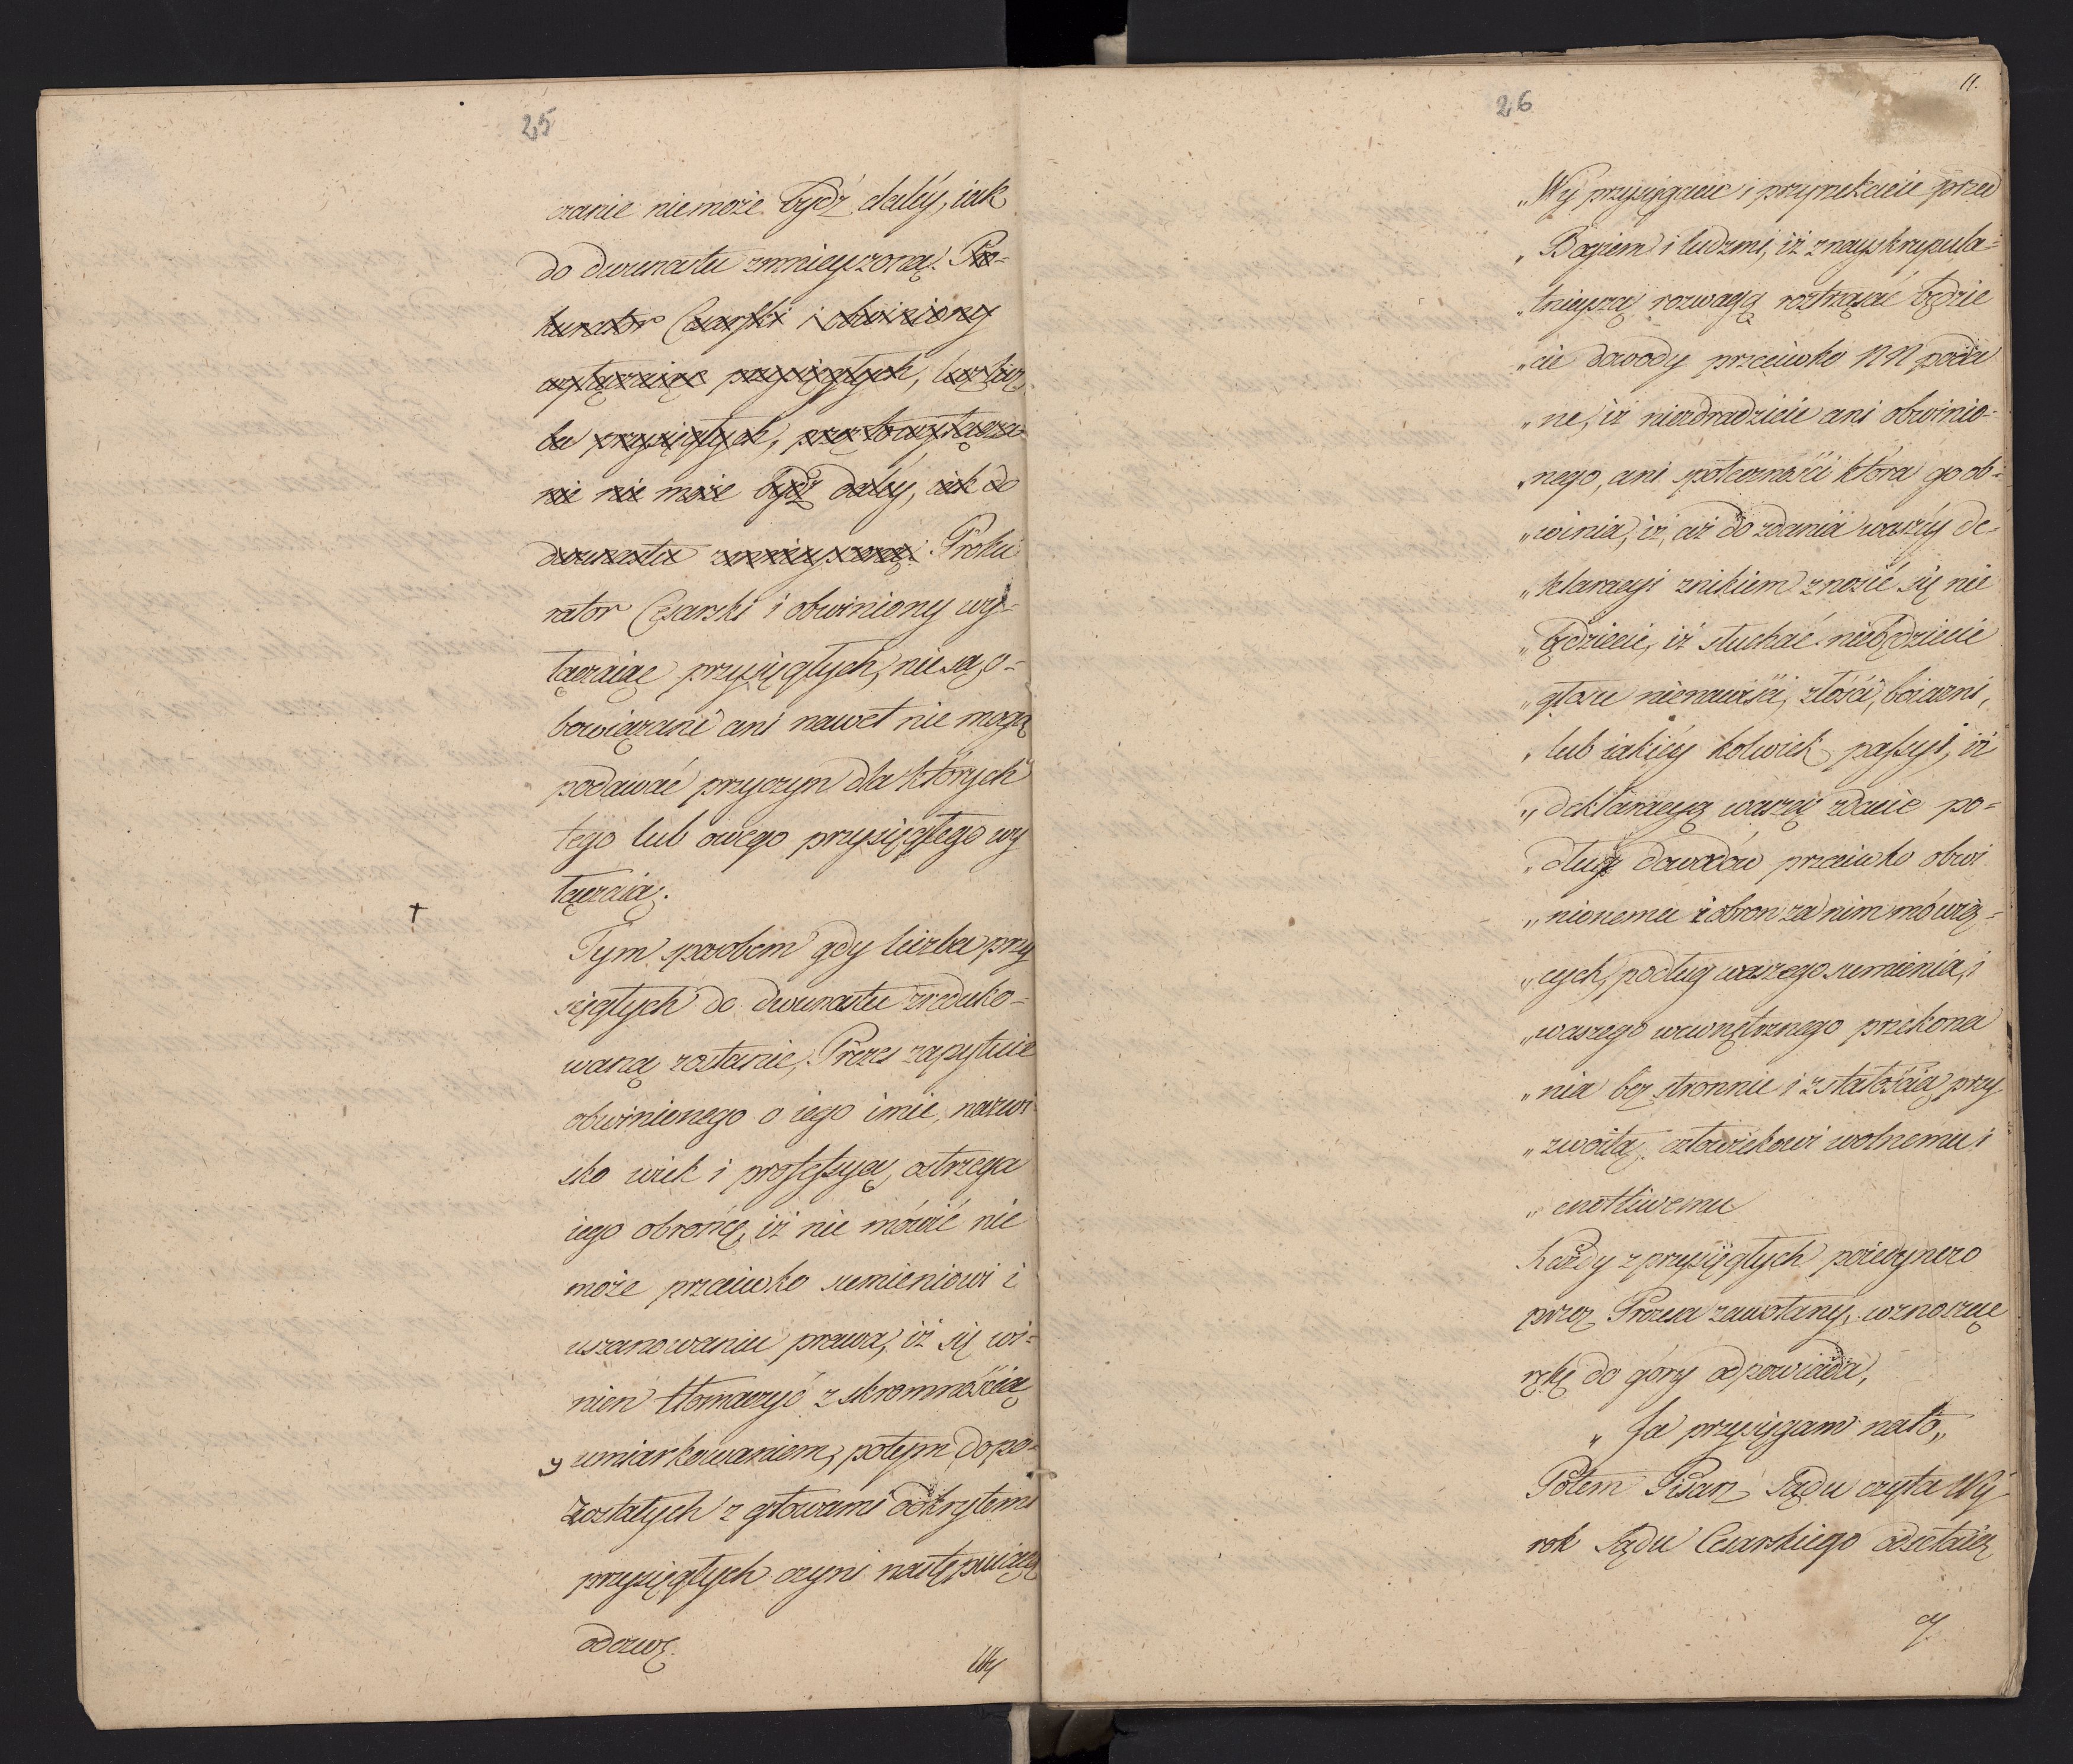 25
czanie niemoże bydź daléy, iak
do dwunastu zmnieyszoną. Pro-
kurator Cesarski i obwiniony
wyłączaiąc przysięgłych, licz
ba przysięgłych, przez to wyłącza
nie nie może bydź daléy, iak do
dwunastu zmnieyszoną. Proku
rator Cesarski i obwiniony wy-
łączaiąc przysięgłych, nie są o-
bowiązani ani nawet nie mogą
podawać przyczyn dla których
tego lub owego przysięgłego wy
łączaią.
+
Tym sposobem gdy liczba przy
sięgłych do dwunastu zreduko-
waną zostanie, Prezes zapytuie
obwinionego o iego imie, nazwi
sko wiek i professyą, ostrzega
iego obrońcę, iż nie mówić nie
może przeciwko sumieniowi i
uszanowaniu prawa, iż się wi-
nien tłomaczyć z skromnością
y umiarkowaniem, potym do po-
zostałych z głowami odkrytemi
przysięgłych czyni następuiącą
odezwę.
Wy
26
11.
„Wy przysięgacie i przyrzekacie przed
„Bogiem i ludzmi, iż z nayskrupula-
„tnieyszą rozwagą roztrząsać będzie
„cie dowody przeciwko NN poda
„ne, iż niezdradzicie ani obwinio-
„nego, ani społeczności która go ob-
„winia, iż, aż do zdania waszéy de-
„klaracyi znikiem znosić się nie
„będziecie, iż słuchać niebędziecie
„głosu nienawiści, złości, boiazni,
„lub iakiéy kolwiek passyi, iż
„deklaracyą waszą zdacie po-
„dług dowodów przeciwko obwi
„nionemu i obron za nim mówią-
„cych, podług waszego sumienia, i
„waszego wewnętrznego przekona
„nia bez stronnie i z stałością przy
„zwoitą człowiekowi wolnemu i
„cnotliwemu
Każdy z przysięgłych poiedynczo
przez Prezesa zawołany, wznosząc
rękę do góry odpowiada,
„Ja przysięgam nato„
Potem Pisarz Sądu czyta Wy-
rok Sądu Cesarskiego odsełaią
cy